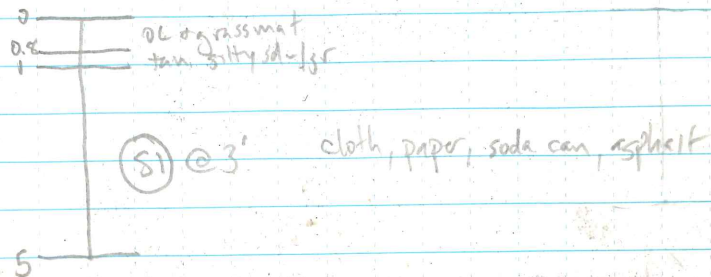 0
OL + grassmat
0.8
tan, silty sd - fgr
1
S1 @ 3' cloth, paper, soda can, asphalt
5